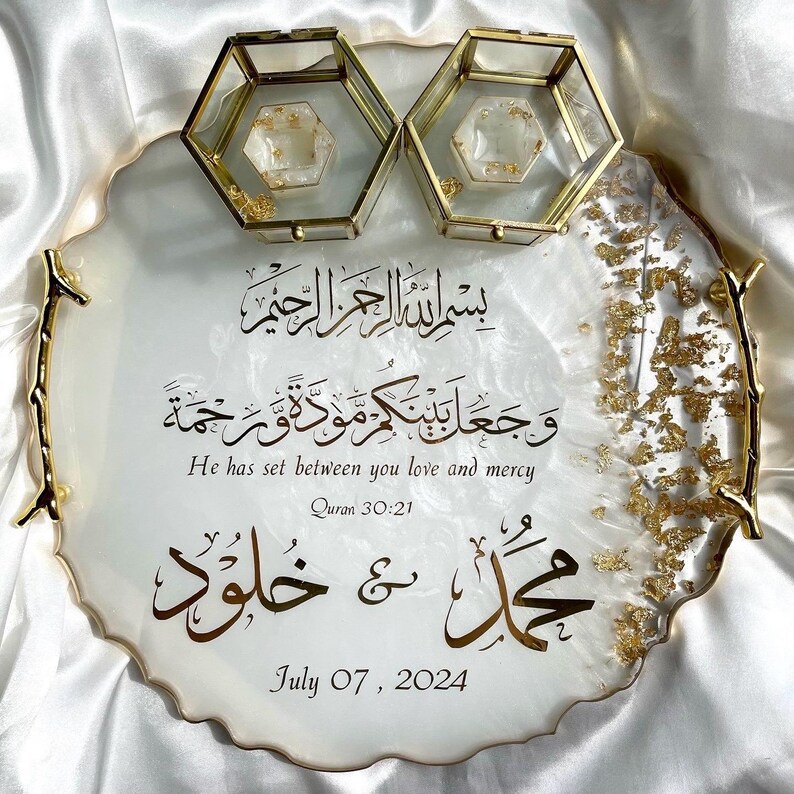 بِسْمِ اللهِ الرَّحْمَنِ الرَّحِيْمِ
وَجَعَلَ بَيْنَكُمْ مَّوَدَّةً وَّرَحْمَةً
He has set between you love and mercy
Quran 30:21
مُحَمَّد & خُلُود
July 07 , 2024